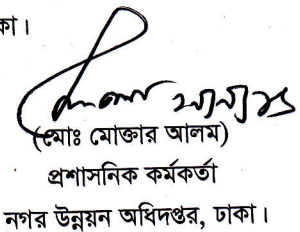 কা।
(মোঃ মোক্তার আলম)
প্রশাসনিক কর্মকর্তা
নগর উন্নয়ন অধিদপ্তর, ঢাকা।